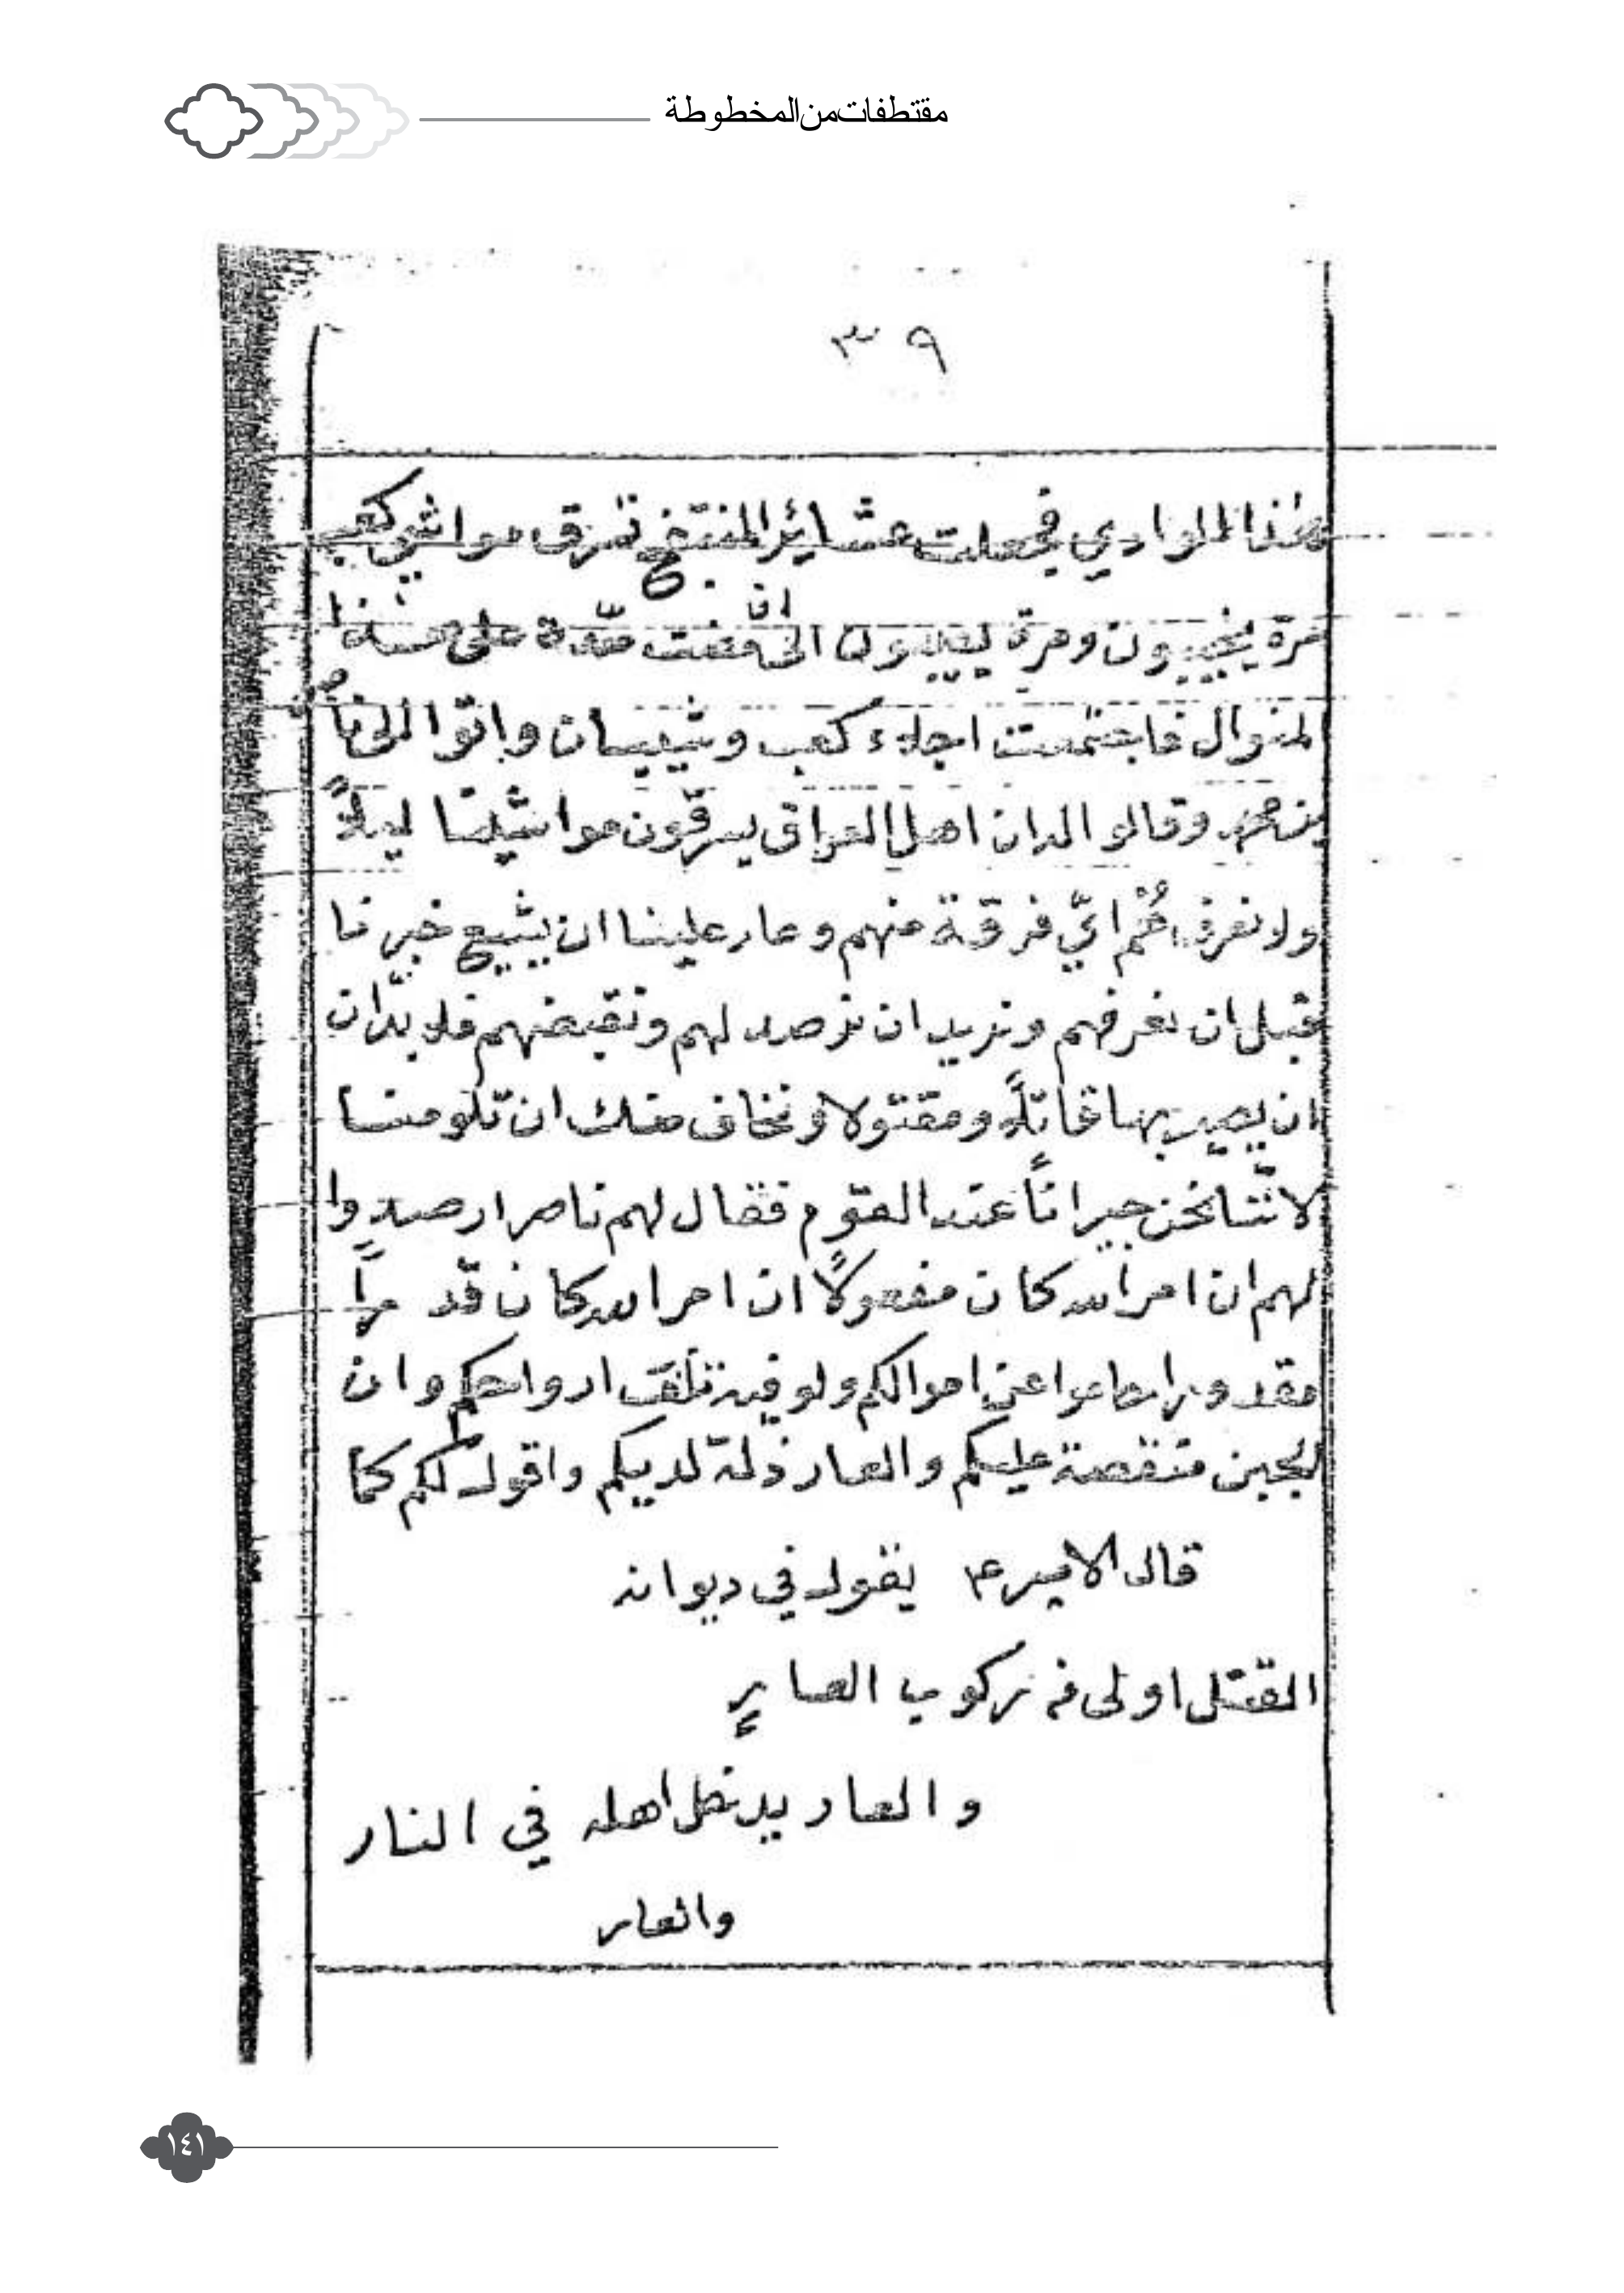 مقتطفات من المخطوطة
٣٩
هذا الوادي فجعلت عشائر المنتفج تسرق مواشي كعب
مرة يخيبون ومرة يصيبون الى ان مضت مدة على هذا
المنوال فاجتمعت اجلاء كعب وشيبان واتوا الى ناصر
بن محمد وقالو اله ان اهل العراق يسرقون مواشينا ليلاً
ولا نعرف هُم ايّ فرقة منهم وعار علينا ان يشيع خبرنا
قبل ان نعرفهم ونريد ان نرصد لهم ونقبضهم فلا بدّ ان
ان يصير بها قاتلاً ومقتولا ونخاف منك ان تلومنا
لانّنا نحن جيراناً عند القوم فقال لهم ناصر ارصدوا
لهم ان امر الله كان مفعولاً ان امر الله كان قدراً
مقدورا حاموا عن اموالكم ولو فيه تلف ارواحكم وان
الجبن منقصة عليكم والعار ذلة لديكم واقول لكم كما
قال الامير ع يقول في ديوانه
القتل اولى من ركوب العارِ
والعار يدخل اهله في النار
والعار
١٤١